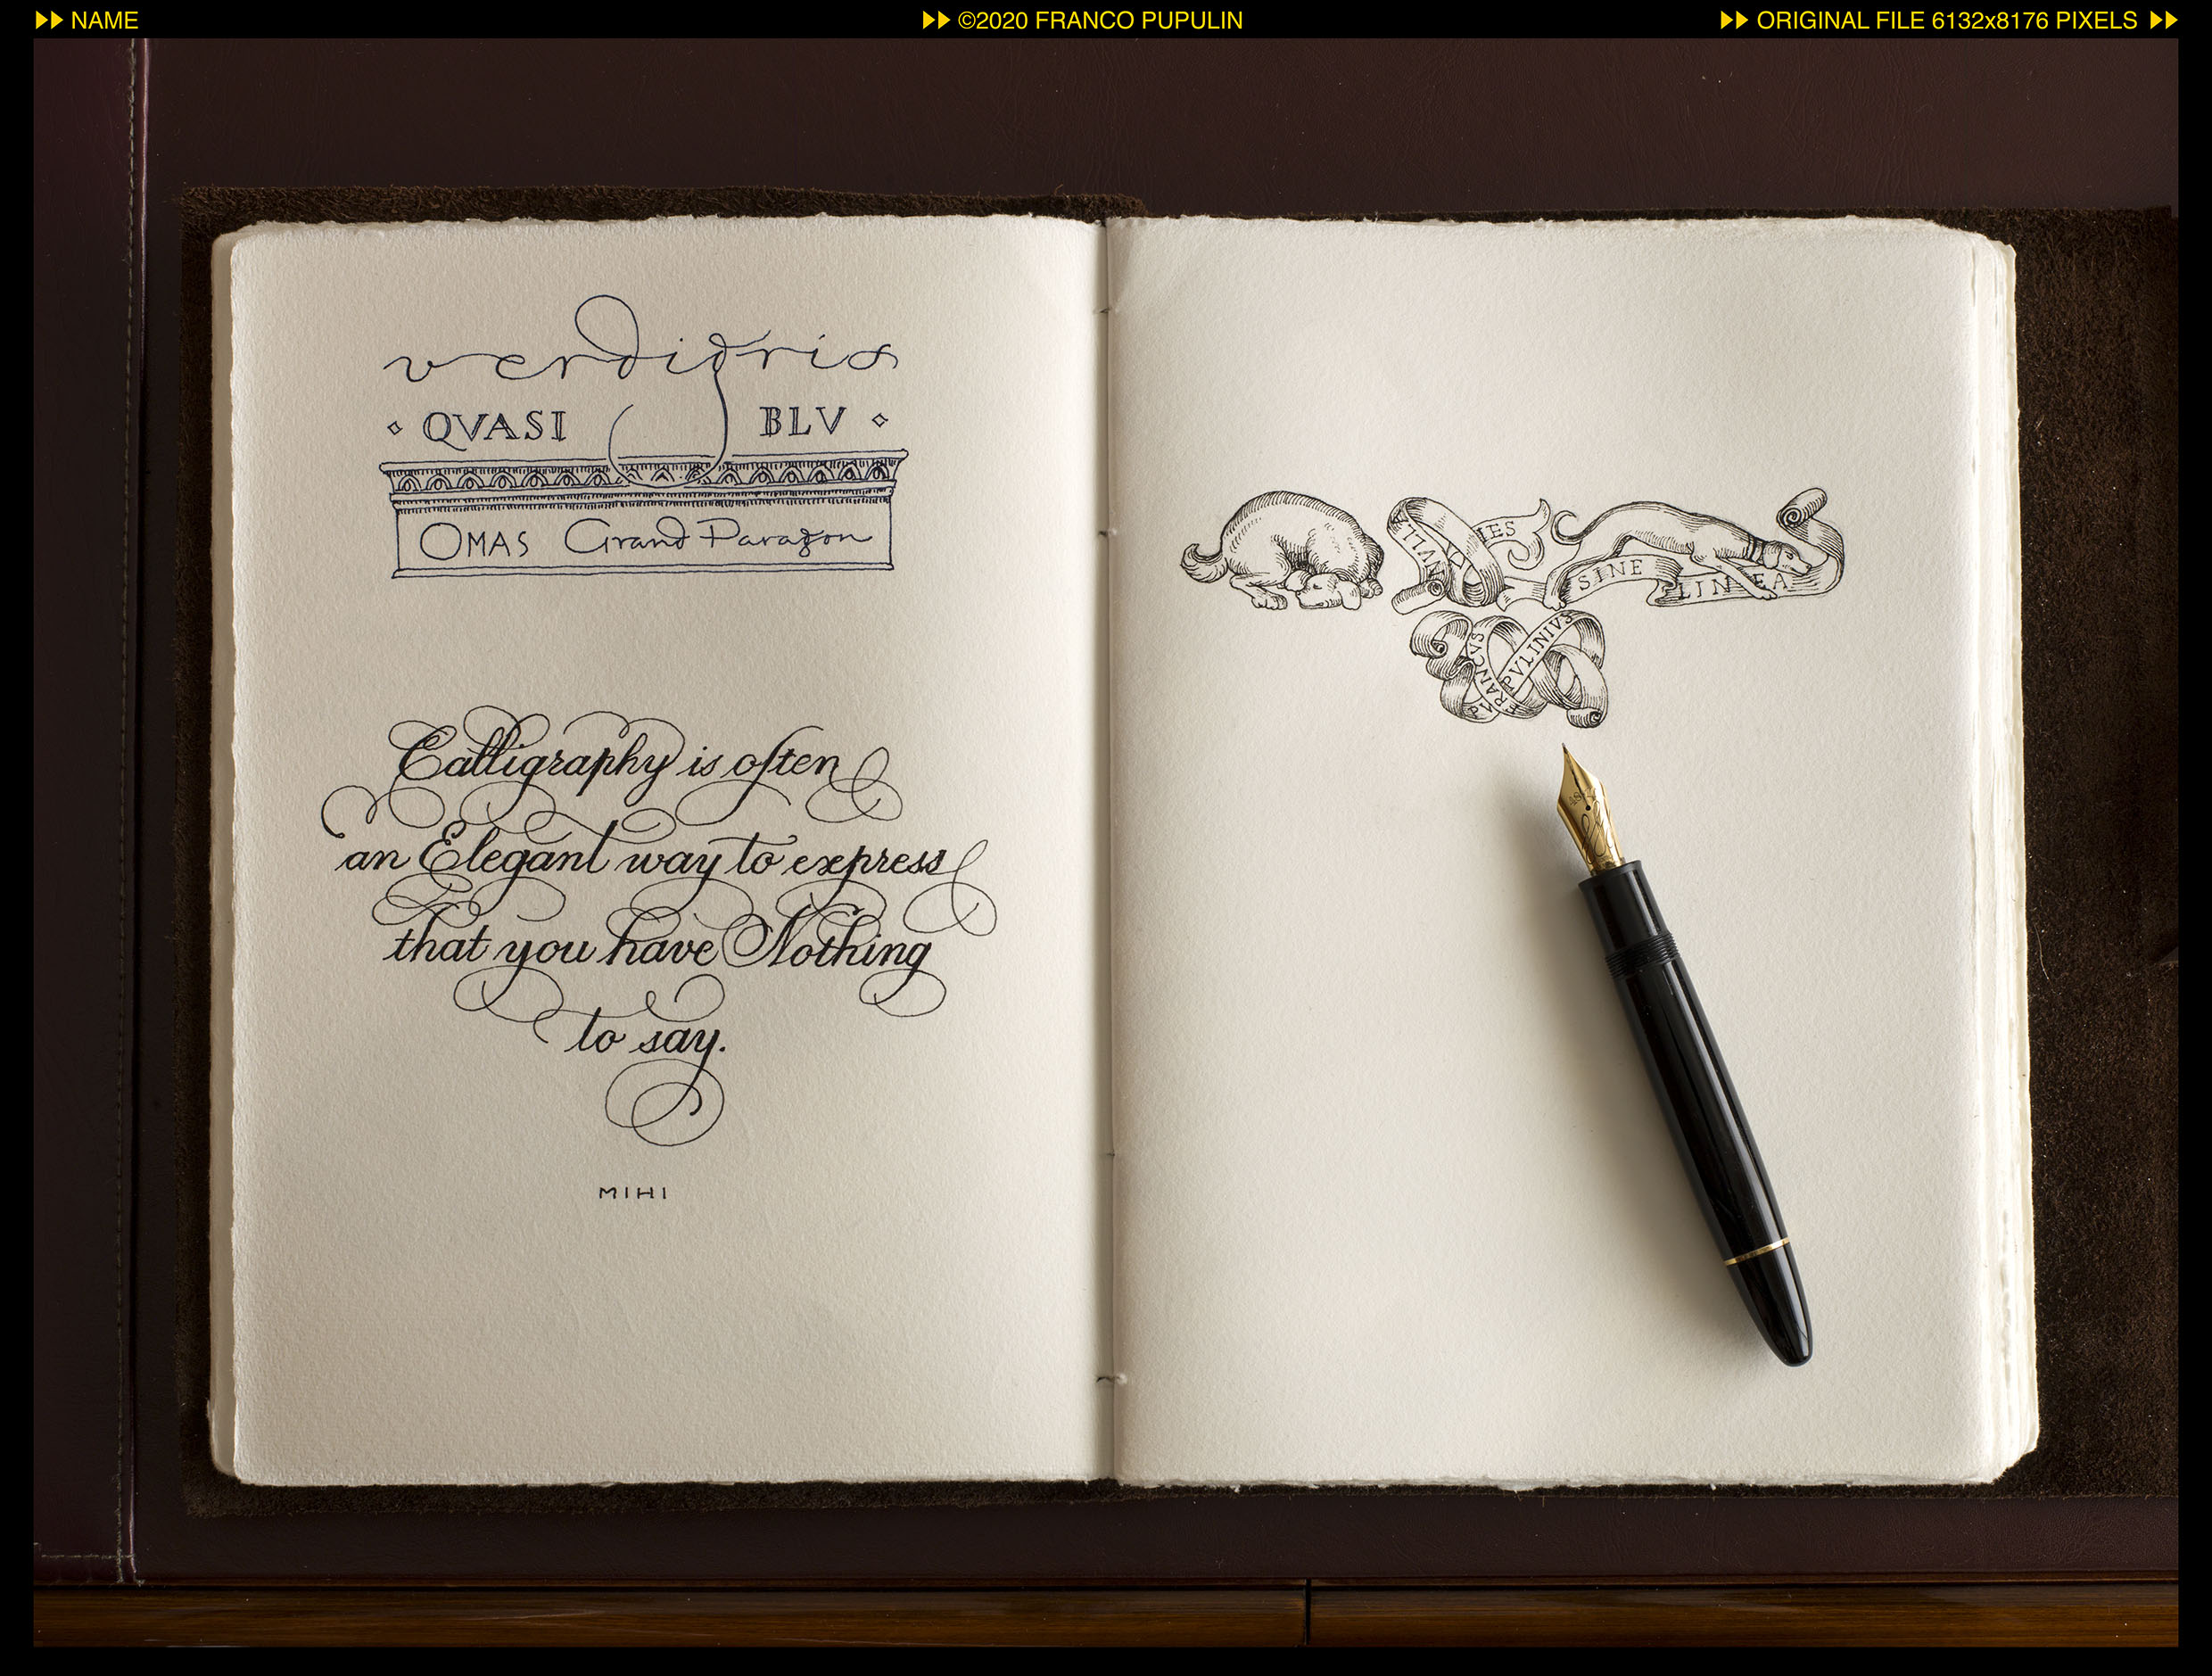 NAME
©2020 FRANCO PUPULIN
ORIGINAL FILE 6132x8176 PIXELS
verdigris
QVASI BLV
OMAS Grand Paragon
Calligraphy is often
an Elegant way to express
that you have Nothing
to say.
MIHI
NVLLA DIES SINE LINEA
FRANCVS PVPVLINIVS